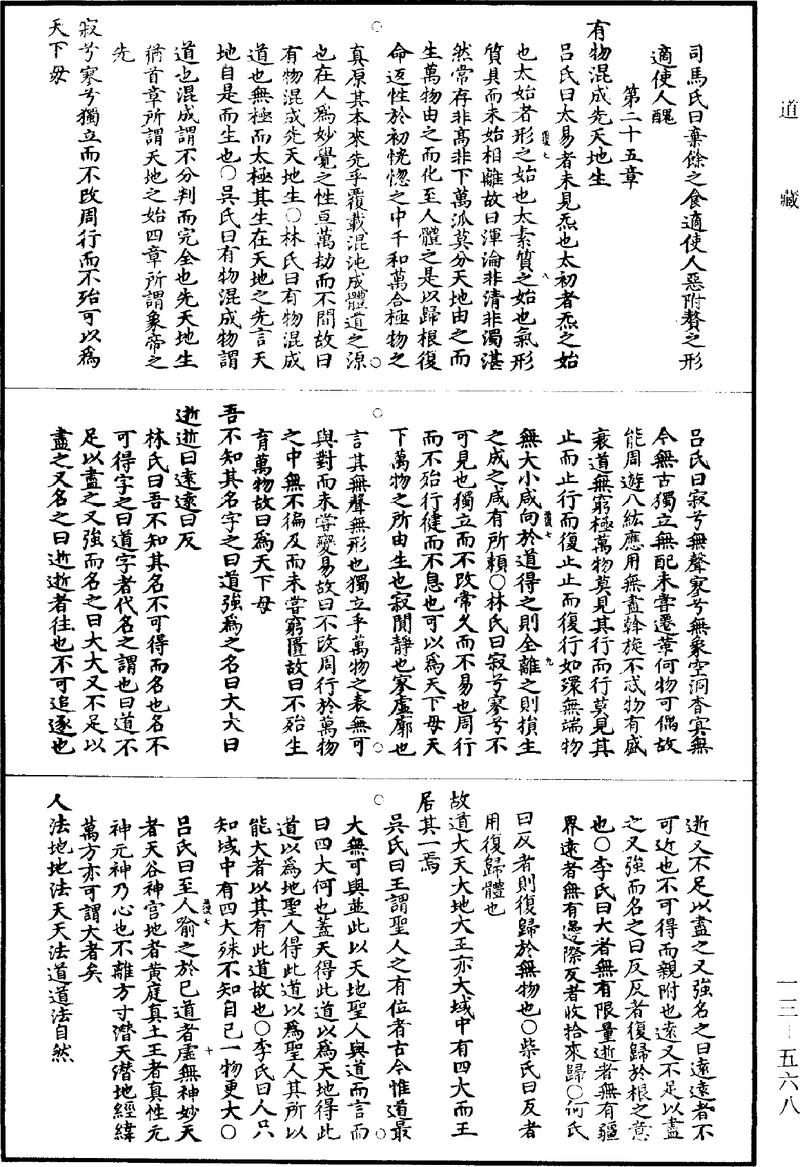 道藏
司馬氏曰棄餘之食適使人惡附贅之形
適使人醜
第二十五章
有物混成先天地生
呂氏曰太易者未見炁也太初者炁之始
也太始者形之始也太素質之始也氣形
質具而未始相離故曰渾淪非清非濁湛
然常存非高非下萬泒莫分天地由之而
生萬物由之而化至人體之是以歸根復
命返性於初恍惚之中千和萬合極物之
真原其本來先乎覆載混沌成體道之源
也在人為妙覺之性亘萬劫而不間故曰
有物混成先天地生○林氏曰有物混成
道也無極而太極其生在天地之先言天
地自是而生也○吳氏曰有物混成物謂
道也混成謂不分判而完全也先天地生
猶首章所謂天地之始四章所謂象帝之
先
寂兮寥兮獨立而不改周行而不殆可以為
天下母
呂氏曰寂兮無聲寥兮無象空洞杳冥無
今無古獨立無配未嘗遷革何物可偶故
能周遊八紘應用無盡斡旋不忒物有盛
衰道無窮極萬物莫見其行而行莫見其
止而止行而復止止而復行如環無端物
無大小咸向於道得之則全離之則損生
之成之咸有所賴○林氏曰寂兮寥兮不
可見也獨立而不改常久而不易也周行
而不殆行健而不息也可以為天下母天
下萬物之所由生也寂閴靜也寥虛廓也
言其無聲無形也獨立乎萬物之表無可
與對而未嘗變易故曰不改周行於萬物
之中無不徧及而未嘗窮匱故曰不殆生
育萬物故曰為天下母
吾不知其名字之曰道強為之名曰大大曰
逝逝曰遠遠曰反
林氏曰吾不知其名不可得而名也名不
可得字之曰道字者代名之謂也曰道不
足以盡之又強而名之曰大大又不足以
盡之又名之曰逝逝者往也不可追逐也
逝又不足以盡之又強名之曰遠遠者不
可近也不可得而親附也遠又不足以盡
之又強而名之曰反反者復歸於根之意
也○李氏曰大者無有限量逝者無有疆
界遠者無有邊際反者收拾來歸○何氏
曰反者則復歸於無物也○柴氏曰反者
用復歸體也
故道大天大地大王亦大域中有四大而王
居其一焉
吳氏曰王謂聖人之有位者古今惟道最
大無可與並此以天地聖人與道而言而
曰四大何也蓋天得此道以為天地得此
道以為地聖人得此道以為聖人其所以
能大者以其有此道故也○李氏曰人只
知域中有四大殊不知自己一物更大○
呂氏曰至人喻之於己道者虛無神妙天
者天谷神宮地者黃庭真土王者真性元
神元神乃心也不離方寸潛天潛地經緯
萬方亦可謂大者矣
人法地地法天天法道道法自然
一三—五六八